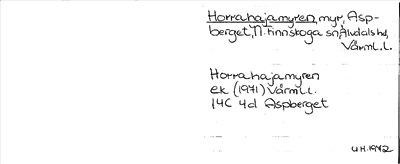 Horrahajamyren, myr, Asp-
berget, N. Finnskoga sn, Älvdals hd,
Värml. l.
Horrahajamyren
ek (1971) Värml. l.
14C 4d Aspberget
U.H. 1972